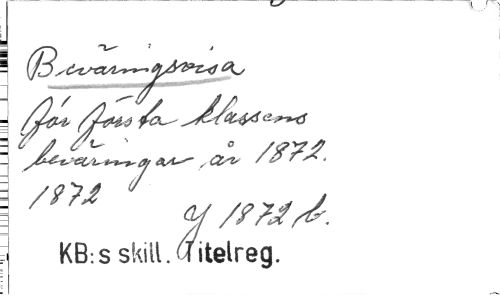 Beväringsvisa
för första klassens
beväringar år 1872.
1872
Y 1872 b.
KB:s skill. Titelreg.